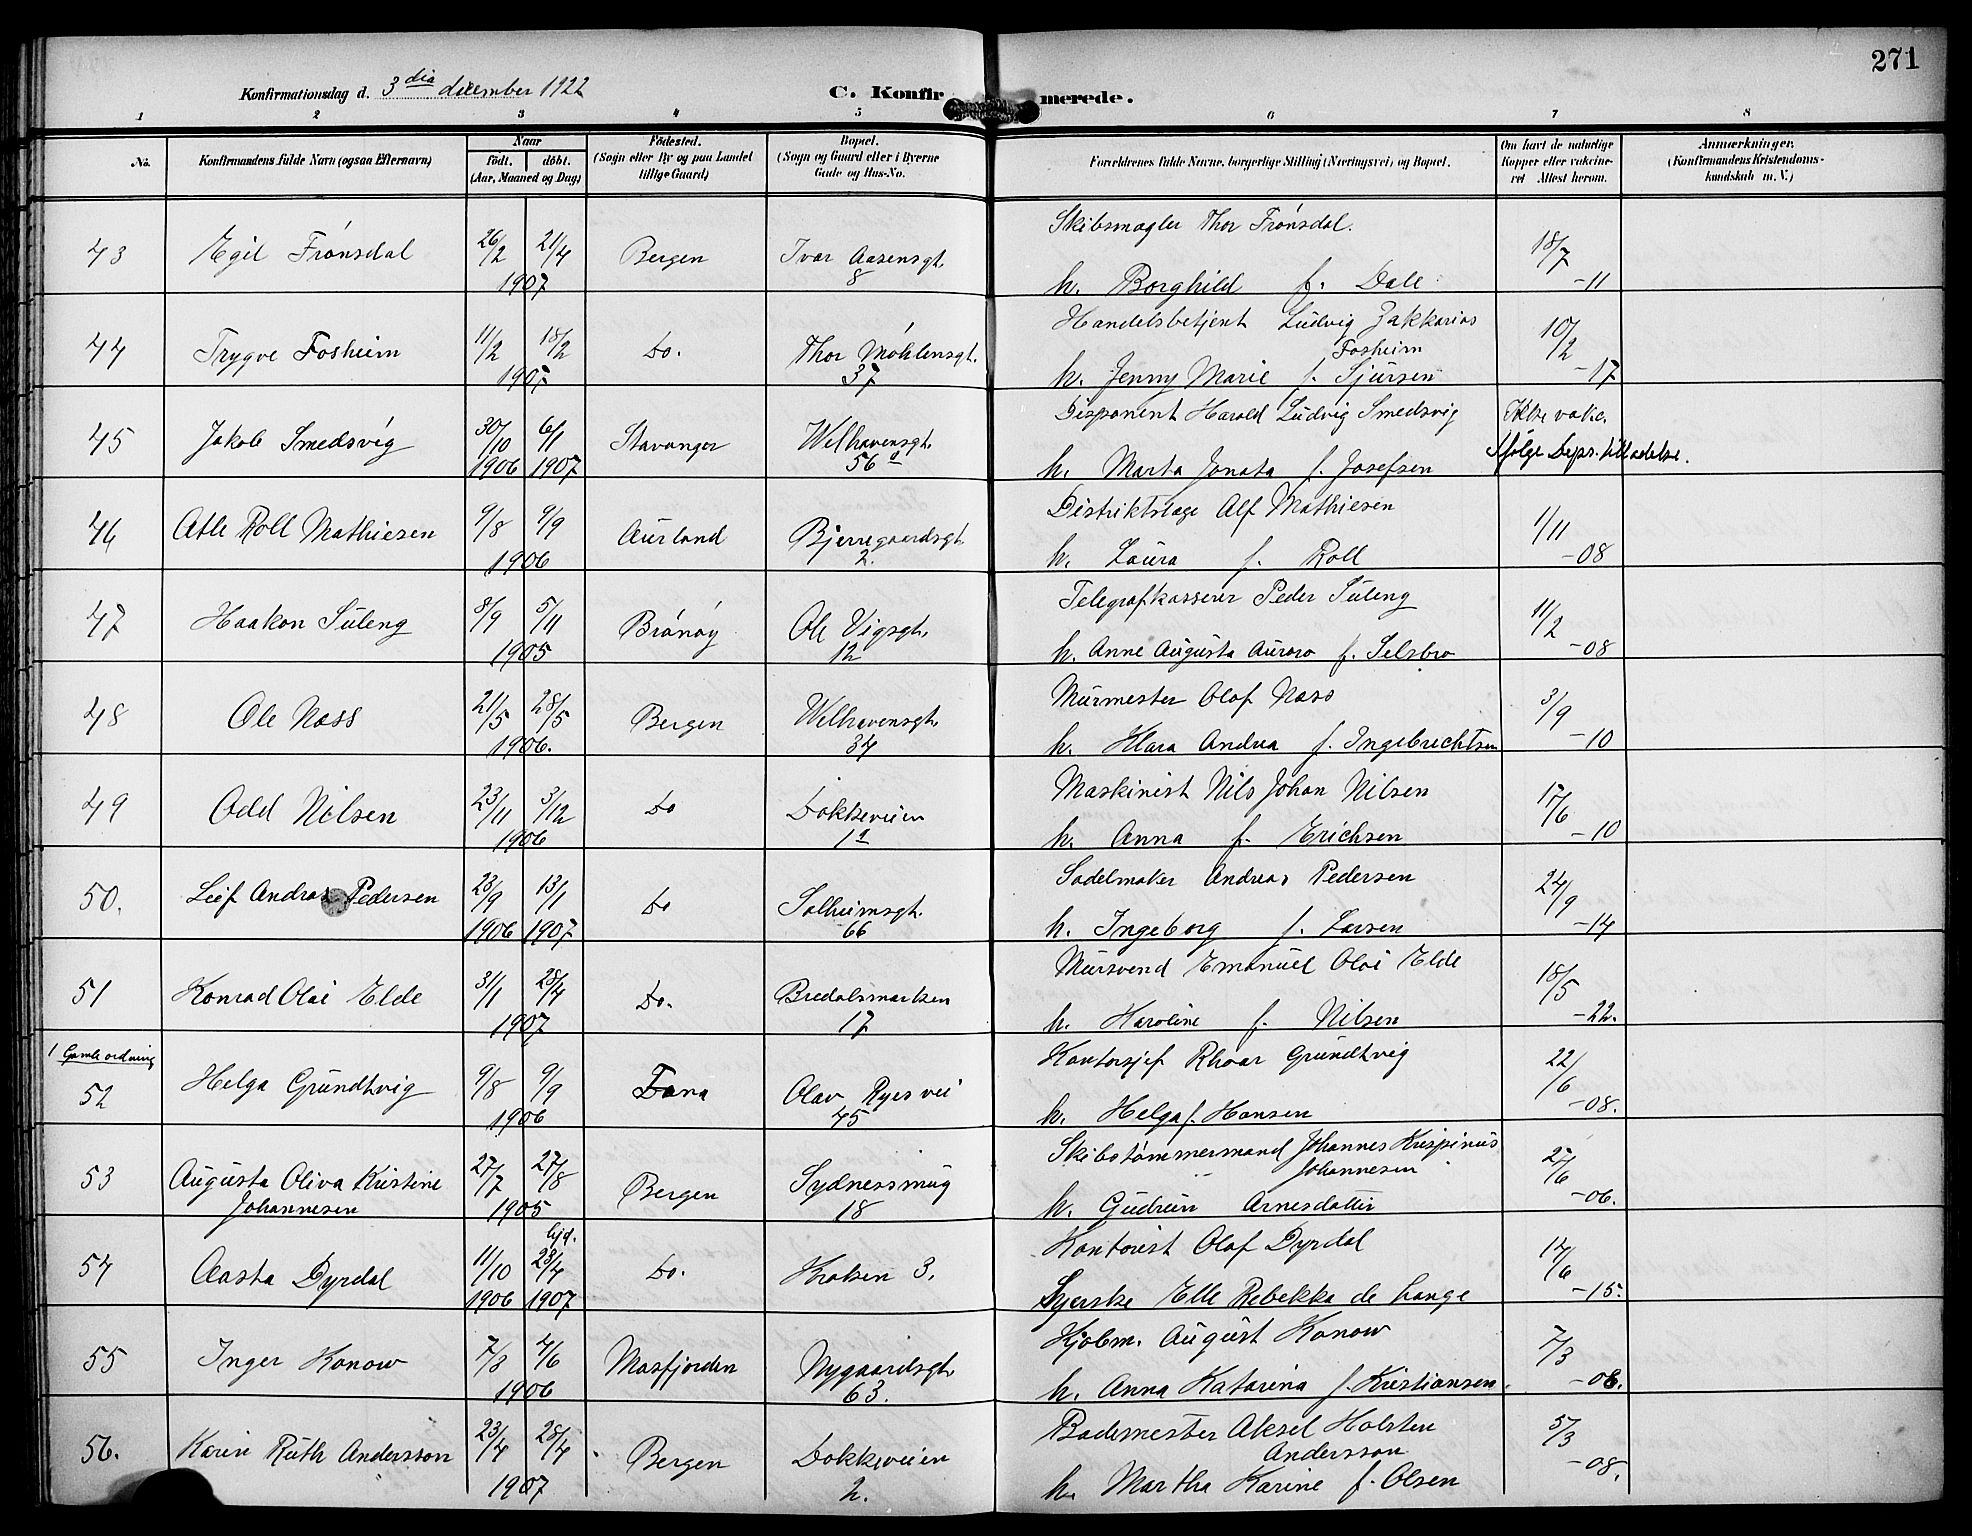 271
Konfirmationsdag d. 3dia december 1922
C. Konfirmerede.
1 2 3 4 5 6 7 8
No. Konfirmandens fulde Navn (ogsaa Efternavn) Naar født. døbt. (Aar, Maaned og Dag) Fødested. (Sogn eller By og paa Landet tillige Gaard) Bopæl. (Sogn og Gaard eller i Byerne Gade og Hus-No. Forældrenes fulde Navne, borgerlige Stilling (Næringsvei) og Bopæl. Om havt de naturlige Kopper eller vakcineret Attest herom. Anmærkninger. (Konfirmandens Kristendomskundskab m. V.)
43 Egil Frønsdal 26/2 21/4 1907 Bergen Ivar Aasensgt. 8 Skibsmægler Thor Frønsdal. h. Borghild f. Dale 18/7 -11
44 Trygve Fosheim 11/2 18/2 1907 Do. Thor Møhlensgt. 37 Handelsbetjent Ludvig Zakkarias Fosheim h. Jenny Marie f. Sjursen 10/2 -17
45 Jakob Smedsvig 30/10 1906 6/1 1907 Stavanger Welhavensgt. 56a Disponent Harald Ludvig Smedsvig h. Marta Jonata f. Josefsen Ikke vakc. Ifølge Deps. tilladelse.
46 Atle Roll Mathiesen 9/8 9/9 1906 Aurland Bjerregaardsgt. 2. Distriktslæge Alf Mathiesen h. Laura f. Roll 1/11 -08
47 Haakon Suleng 8/9 5/11 1905 Brønøy Ole Vigsgt. 12 Telegrafkasserer Peder Suleng h. Anne Augusta Aurora f. Selsbro 11/2 -08
48 Ole Næss 21/5 28/5 1906. Bergen Welhavensgt. 34 Murmester Olaf Næss h. Klara Andrea f. Ingebrechtsen 3/9 -10
49 Odd Nilsen 23/11 3/12 1906 Do Dokkeveien 1a Maskinist Nils Johan Nilsen h. Anna f. Erichsen 17/6 -10
50. Leif Andreas Pedersen 23/9 1906 13/1 1907 Do Solheimsgt. 66 Sadelmaker Andreas Pedersen h. Ingeborg f. Larsen 24/9 -14
51 Konrad Olai Elde 31/1 28/4 1907 Do. Bredalsmarken 17 Mursvend Emanuel Olai Elde h. Karoline f. Nilsen 18/5 -22.
1 Gamle ordning
52 Helga Grundtvig 9/8 9/9 1906 Fana Olav Ryes vei 45 Kontorsjef Rhoar Grundtvig h. Helga f. Hansen 22/6 -08.
53 Augusta Oliva Kristine Johannesen 27/7 27/8 1905 Bergen Sydnessmug 18 Skibstømmermand Johannes Krispinus Johannesen h. Gudrun Arnesdatter 27/6 -06.
54 Aasta Dyrdal 11/10 1906 hjd. 23/4 1907 Do. Kroken 3. Kontorist Olaf Dyrdal Syerske Elle Rebekka de Lange 14/6 -15.
55 Inger Konow 7/8 4/6 1906 Masfjorden Nygaardsgt. 63. Kjøbm. August Konow h. Anna Katarina f. Kristiansen. 7/3 -08.
56. Karin Ruth Andersson 23/4 28/4 1907 Bergen Dokkeveien 2. Bademester Aksel Holsten Andersson h. Martha Karine f. Olsen 5/3 -08.